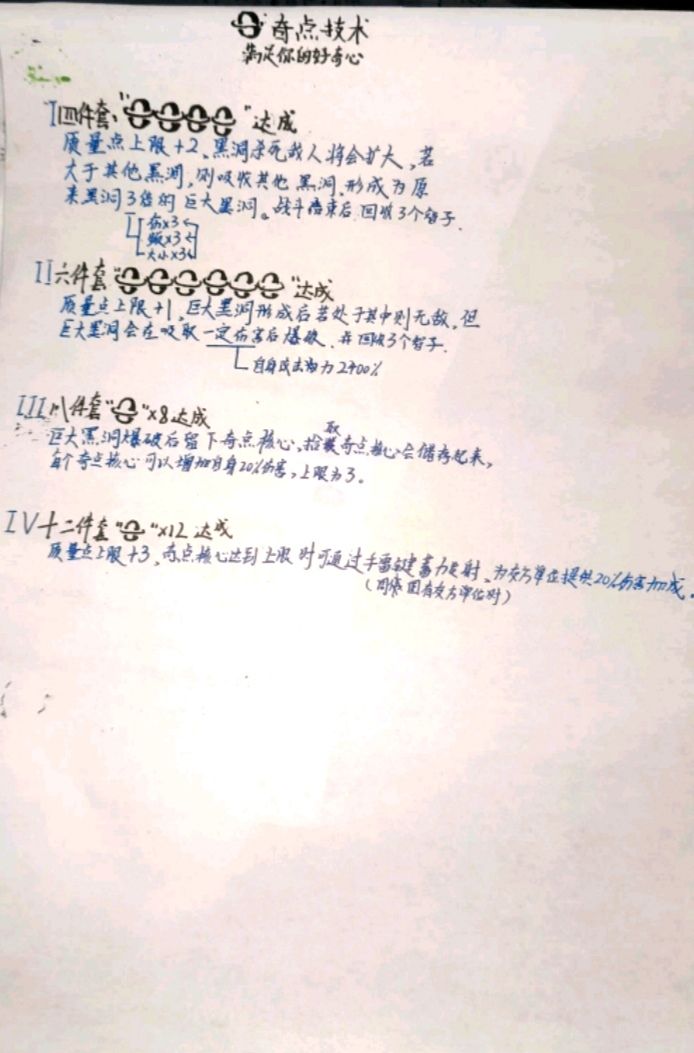 奇点技术
满足你的好奇心
I四件套:“ ”达成
质量点上限+2,黑洞杀死敌人将会扩大,若
大于其他黑洞,则吸收其他黑洞,形成为原
来黑洞3倍的巨大黑洞。战斗结束后回收3个
伤×3
×3
大小×3
II六件套“ ”达成
质量点上限+1,巨大黑洞形成后若处于其中则无敌,但
巨大黑洞会在吸取一定伤害后爆破,并回收3个
自身攻击力2400%
III八件套“ ”×8达成
巨大黑洞爆破后留下奇点核心,拾取奇点核心会储存起来,
每个奇点核心可以增加自身20%伤害,上限为3。
IV十二件套“ ”×12达成
质量点上限+3,奇点核心达到上限时可通过手雷键蓄力发射,为友方单位提供20%伤害加成。
(周围有友方单位时)